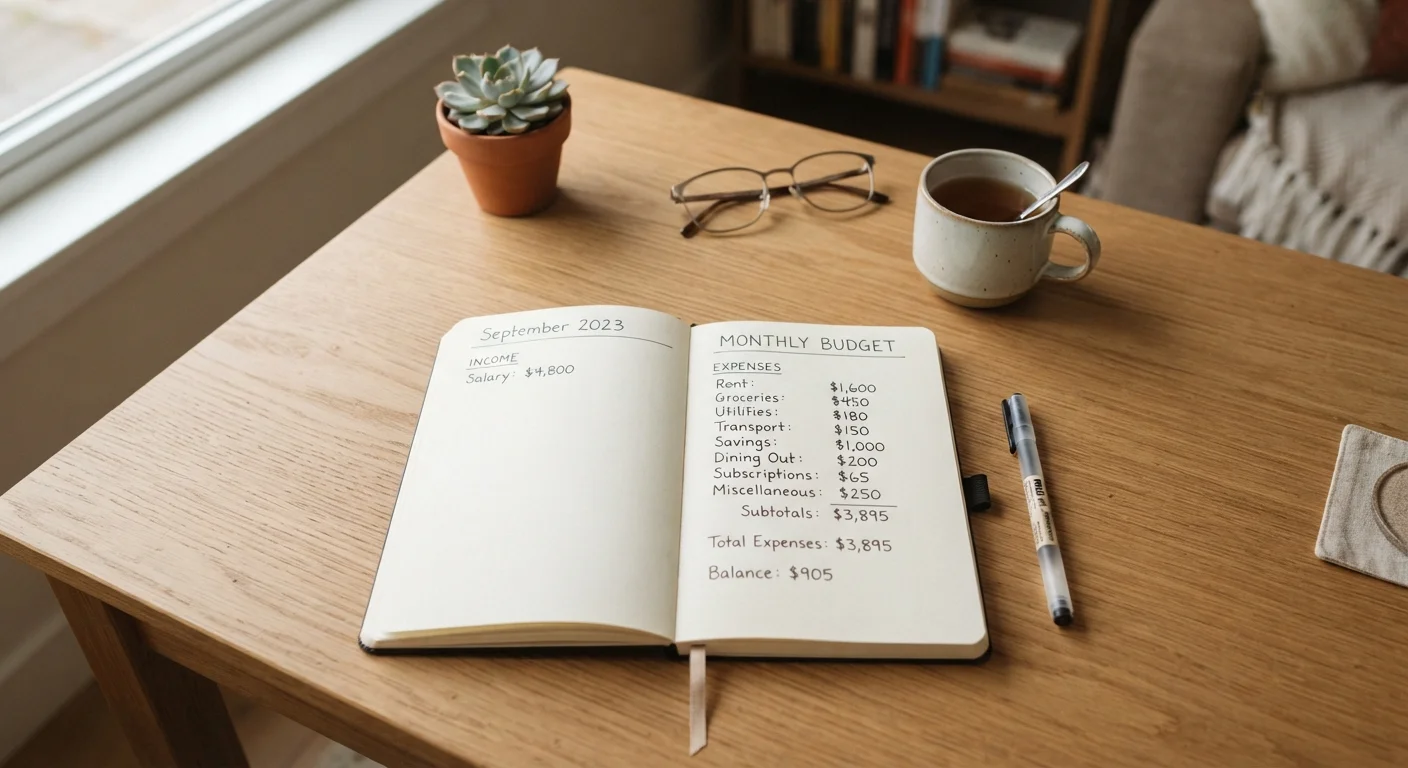 September 2023
INCOME
Salary: $4,800
MONTHLY BUDGET
EXPENSES
Rent: $1,600
Groceries: $450
Utilities: $180
Transport: $150
Savings: $1,000
Dining Out: $200
Subscriptions: $65
Miscellaneous: $250
Subtotals: $3,895
Total Expenses: $3,895
Balance: $905